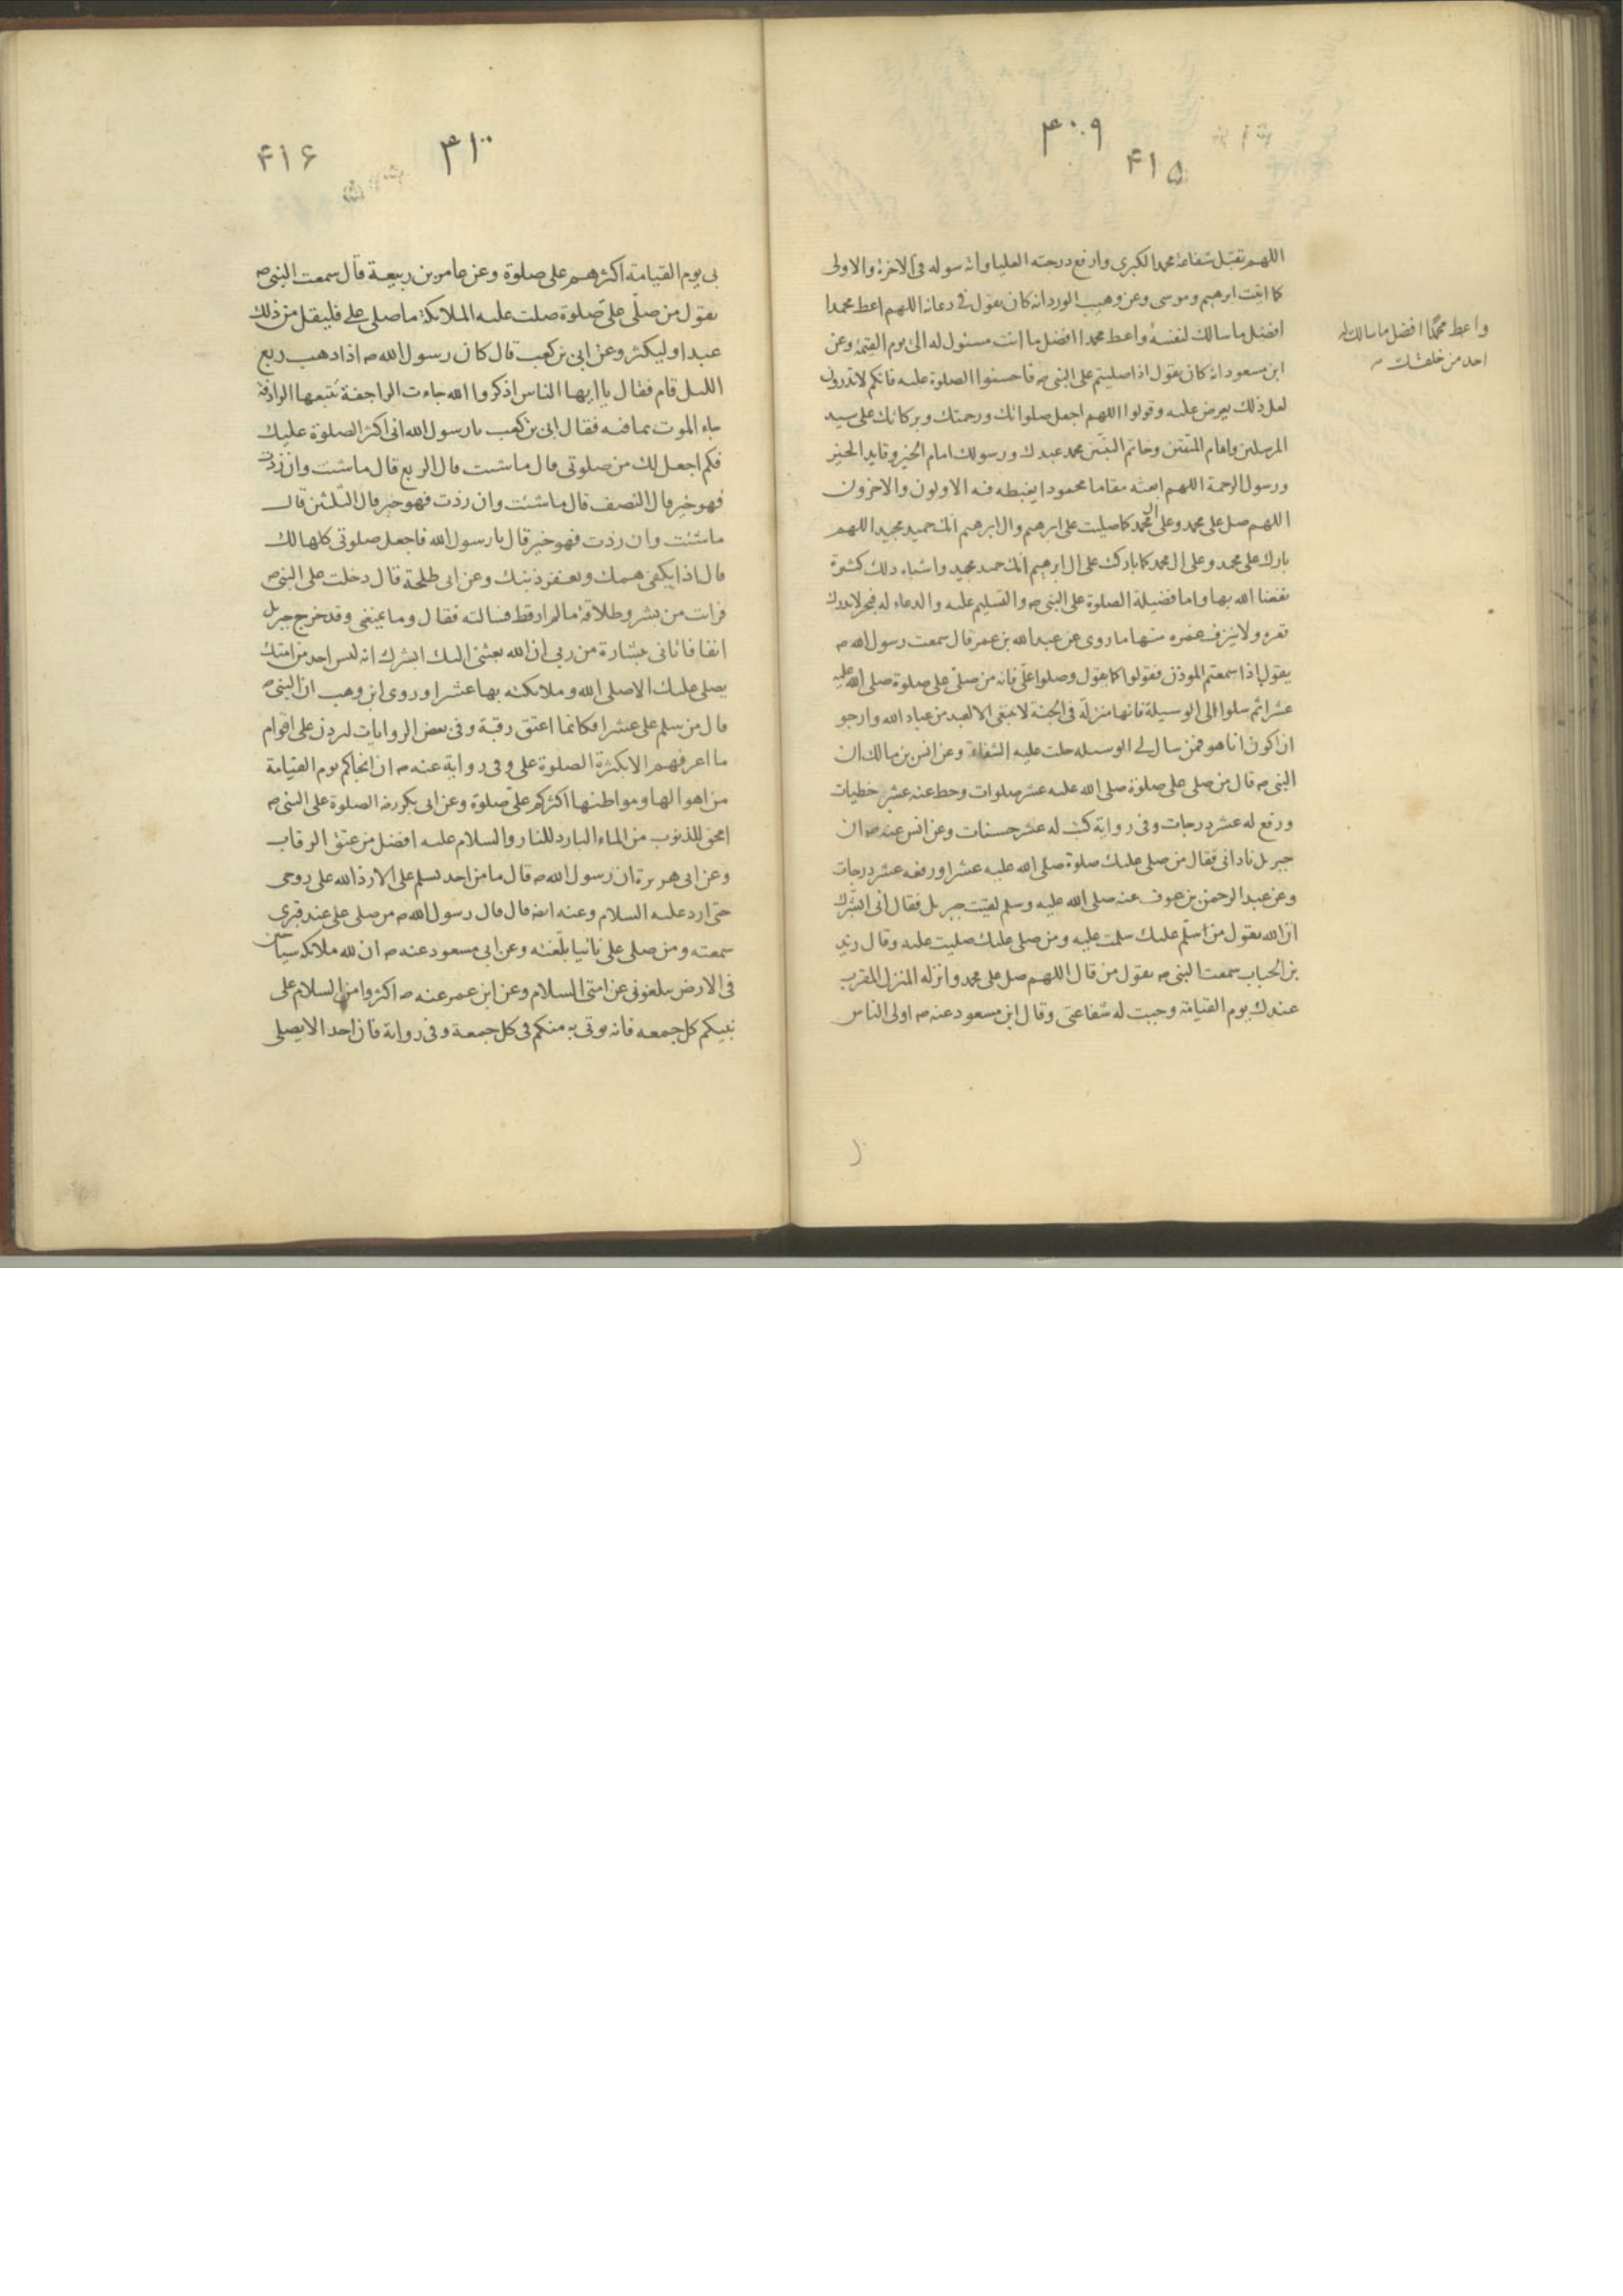 ۳۰۹
۴۱۵
اللهم تقبل شفاعة محمد الكبرى وارفع درجته العليا واته سوله فى الاخرة والاولى
كما اتيت ابرهيم وموسى وعن وهيب الورد انه كان يقول فى دعائه اللهم اعط محمدا
افضل ما سالك لنفسه واعط محمدا افضل ما انت مسئول له الى يوم القيمة وعن
واعط محمدًا افضل ما سالك له
احد من خلقك
ابن مسعود انه كان يقول اذا صليتم على النبى ص فاحسنوا الصلوة عليه فانكم لا تدرون
لعل ذلك يعرض عليه وقولوا اللهم اجعل صلواتك ورحمتك وبركاتك على سيد
المرسلين وامام المتقين وخاتم النبيين محمد عبدك ورسولك امام الخير وقايد الخير
ورسول الرحمة اللهم ابعثه مقاما محمودا يغبطه فيه الاولون والاخرون
اللهم صل على محمد وعلى ال محمد كما صليت على ابرهيم وال ابرهيم انك حميد مجيد اللهم
بارك على محمد وعلى ال محمد كما باركت على ال ابرهيم انك حميد مجيد واشباه ذلك كثيرة
نفعنا الله بها واما فضيلة الصلوة على النبى ص والتسليم عليه والدعاء له فبحر لا يدرك
قعره ولا ينزف غمره منها ما روى عن عبد الله بن عمر قال سمعت رسول الله ص
يقول اذا سمعتم الموذن فقولوا كما يقول وصلوا علىّ فانه من صلى على صلوة صلى الله عليه
عشرا ثم سلوا لى الوسيلة فانها منزلة فى الجنة لا ينبغى الا لعبد من عباد الله وارجو
ان اكون انا هو فمن سال لى الوسيله حلت عليه الشفاعة وعن انس بن مالك ان
النبى ص قال من صلى على صلوة صلى الله عليه عشر صلوات وحط عنه عشر خطيات
ورفع له عشر درجات وفى رواية كتب له عشر حسنات وعن انس عنه ص ان
جبريل نادانى فقال من صلى عليك صلوة صلى الله عليه عشرا ورفعه عشر درجات
وعن عبد الرحمن بن عوف عنه صلى الله عليه وسلم لقيت جبريل فقال انى ابشرك
ان الله يقول من اسلّم عليك سلمت عليه ومن صلى عليك صليت عليه وقال زيد
بن الحباب سمعت النبى ص يقول من قال اللهم صل على محمد وانزله المنزل المقرب
عندك يوم القيامة وجبت له شفاعتى وقال ابن مسعود عنه ص اولى الناس
۳۱۰
۴۱۶
بى يوم القيامة اكثرهم على صلوة وعن عامر بن ربيعة قال سمعت النبى ص
يقول من صلّى علىّ صلوة صلت عليه الملائكة ما صلى على فليقل من ذلك
عبدا وليكثر وعن ابى بن كعب قال كان رسول الله ص اذا ذهب ربع
الليل قام فقال يا ايها الناس اذكروا الله جاءت الراجفة تتبعها الرادفة
جاء الموت بما فيه فقال ابى بن كعب يا رسول الله انى اكثر الصلوة عليك
فكم اجعل لك من صلوتى قال ما شئت قال الربع قال ما شئت وان زدت
فهو خير قال النصف قال ما شئت وان زدت فهو خير قال الثلثين قال
ما شئت وان زدت فهو خير قال يا رسول الله فاجعل صلوتى كلها لك
قال اذا يكفى همك ويغفر ذنبك وعن ابى طلحة قال دخلت على النبى ص
فرايت من بشر وطلاقة ما لم ار قط فسالته فقال وما يمنعنى وقد خرج جبريل
انفا فاتانى ببشارة من ربى ان الله بعثنى اليك ابشرك انه ليس احد من امتك
يصلى عليك الا صلى الله وملائكته بها عشرا وروى ابن وهب ان النبى ص
قال من سلم على عشرا فكانما اعتق رقبة وفى بعض الروايات ليردن على اقوام
ما اعرفهم الا بكثرة الصلوة على وفى رواية عنه ص ان انجاكم يوم القيامة
من اهوالها ومواطنها اكثركم علىّ صلوة وعن ابى بكر رضه الصلوة على النبى ص
امحق للذنوب من الماء البارد للنار والسلام عليه افضل من عتق الرقاب
وعن ابى هريرة ان رسول الله ص قال ما من احد يسلم على الا رد الله على روحى
حتى ارد عليه السلام وعنه ايضا قال قال رسول الله ص من صلى على عند قبرى
سمعته ومن صلى على نائيا بلّغته وعن ابى مسعود عنه ص ان لله ملائكة سياحين
فى الارض يبلغونى عن امتى السلام وعن ابن عمر عنه ص اكثروا من السلام على
نبيكم كل جمعه فانه يوتى به منكم فى كل جمعة وفى رواية فان احدا لا يصلى